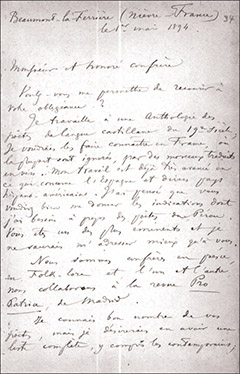 Beaumont-la-Ferrière (Nièvre, France) 34
le 1er mai 1894
Monsieur et honoré confrère
Voulez-vous me permettre de recourir à
votre obligeance ?
Je travaille à une Anthologie des
poètes de langue castillane du 19me siècle.
Je voudrais les faire connaître en France, où
la plupart sont ignorés, par des morceaux traduits
en vers. Mon travail est déjà très avancé en
ce qui concerne l'Espagne et divers pays
hispano-américains. J'ai pensé que vous
voudriez bien me donner les indications dont
j'ai besoin à propos des poètes du Pérou.
Vous êtes un des plus éminents et je
ne saurais m'adresser mieux qu'à vous.
Nous sommes confrères en poésie,
en Folk-lore et l'un et l'autre
nous collaborons à la revue Pro
Patria de Madrid.
Je connais bon nombre de vos
poètes, mais je désirerais en avoir une
liste complète, y compris les contemporains,